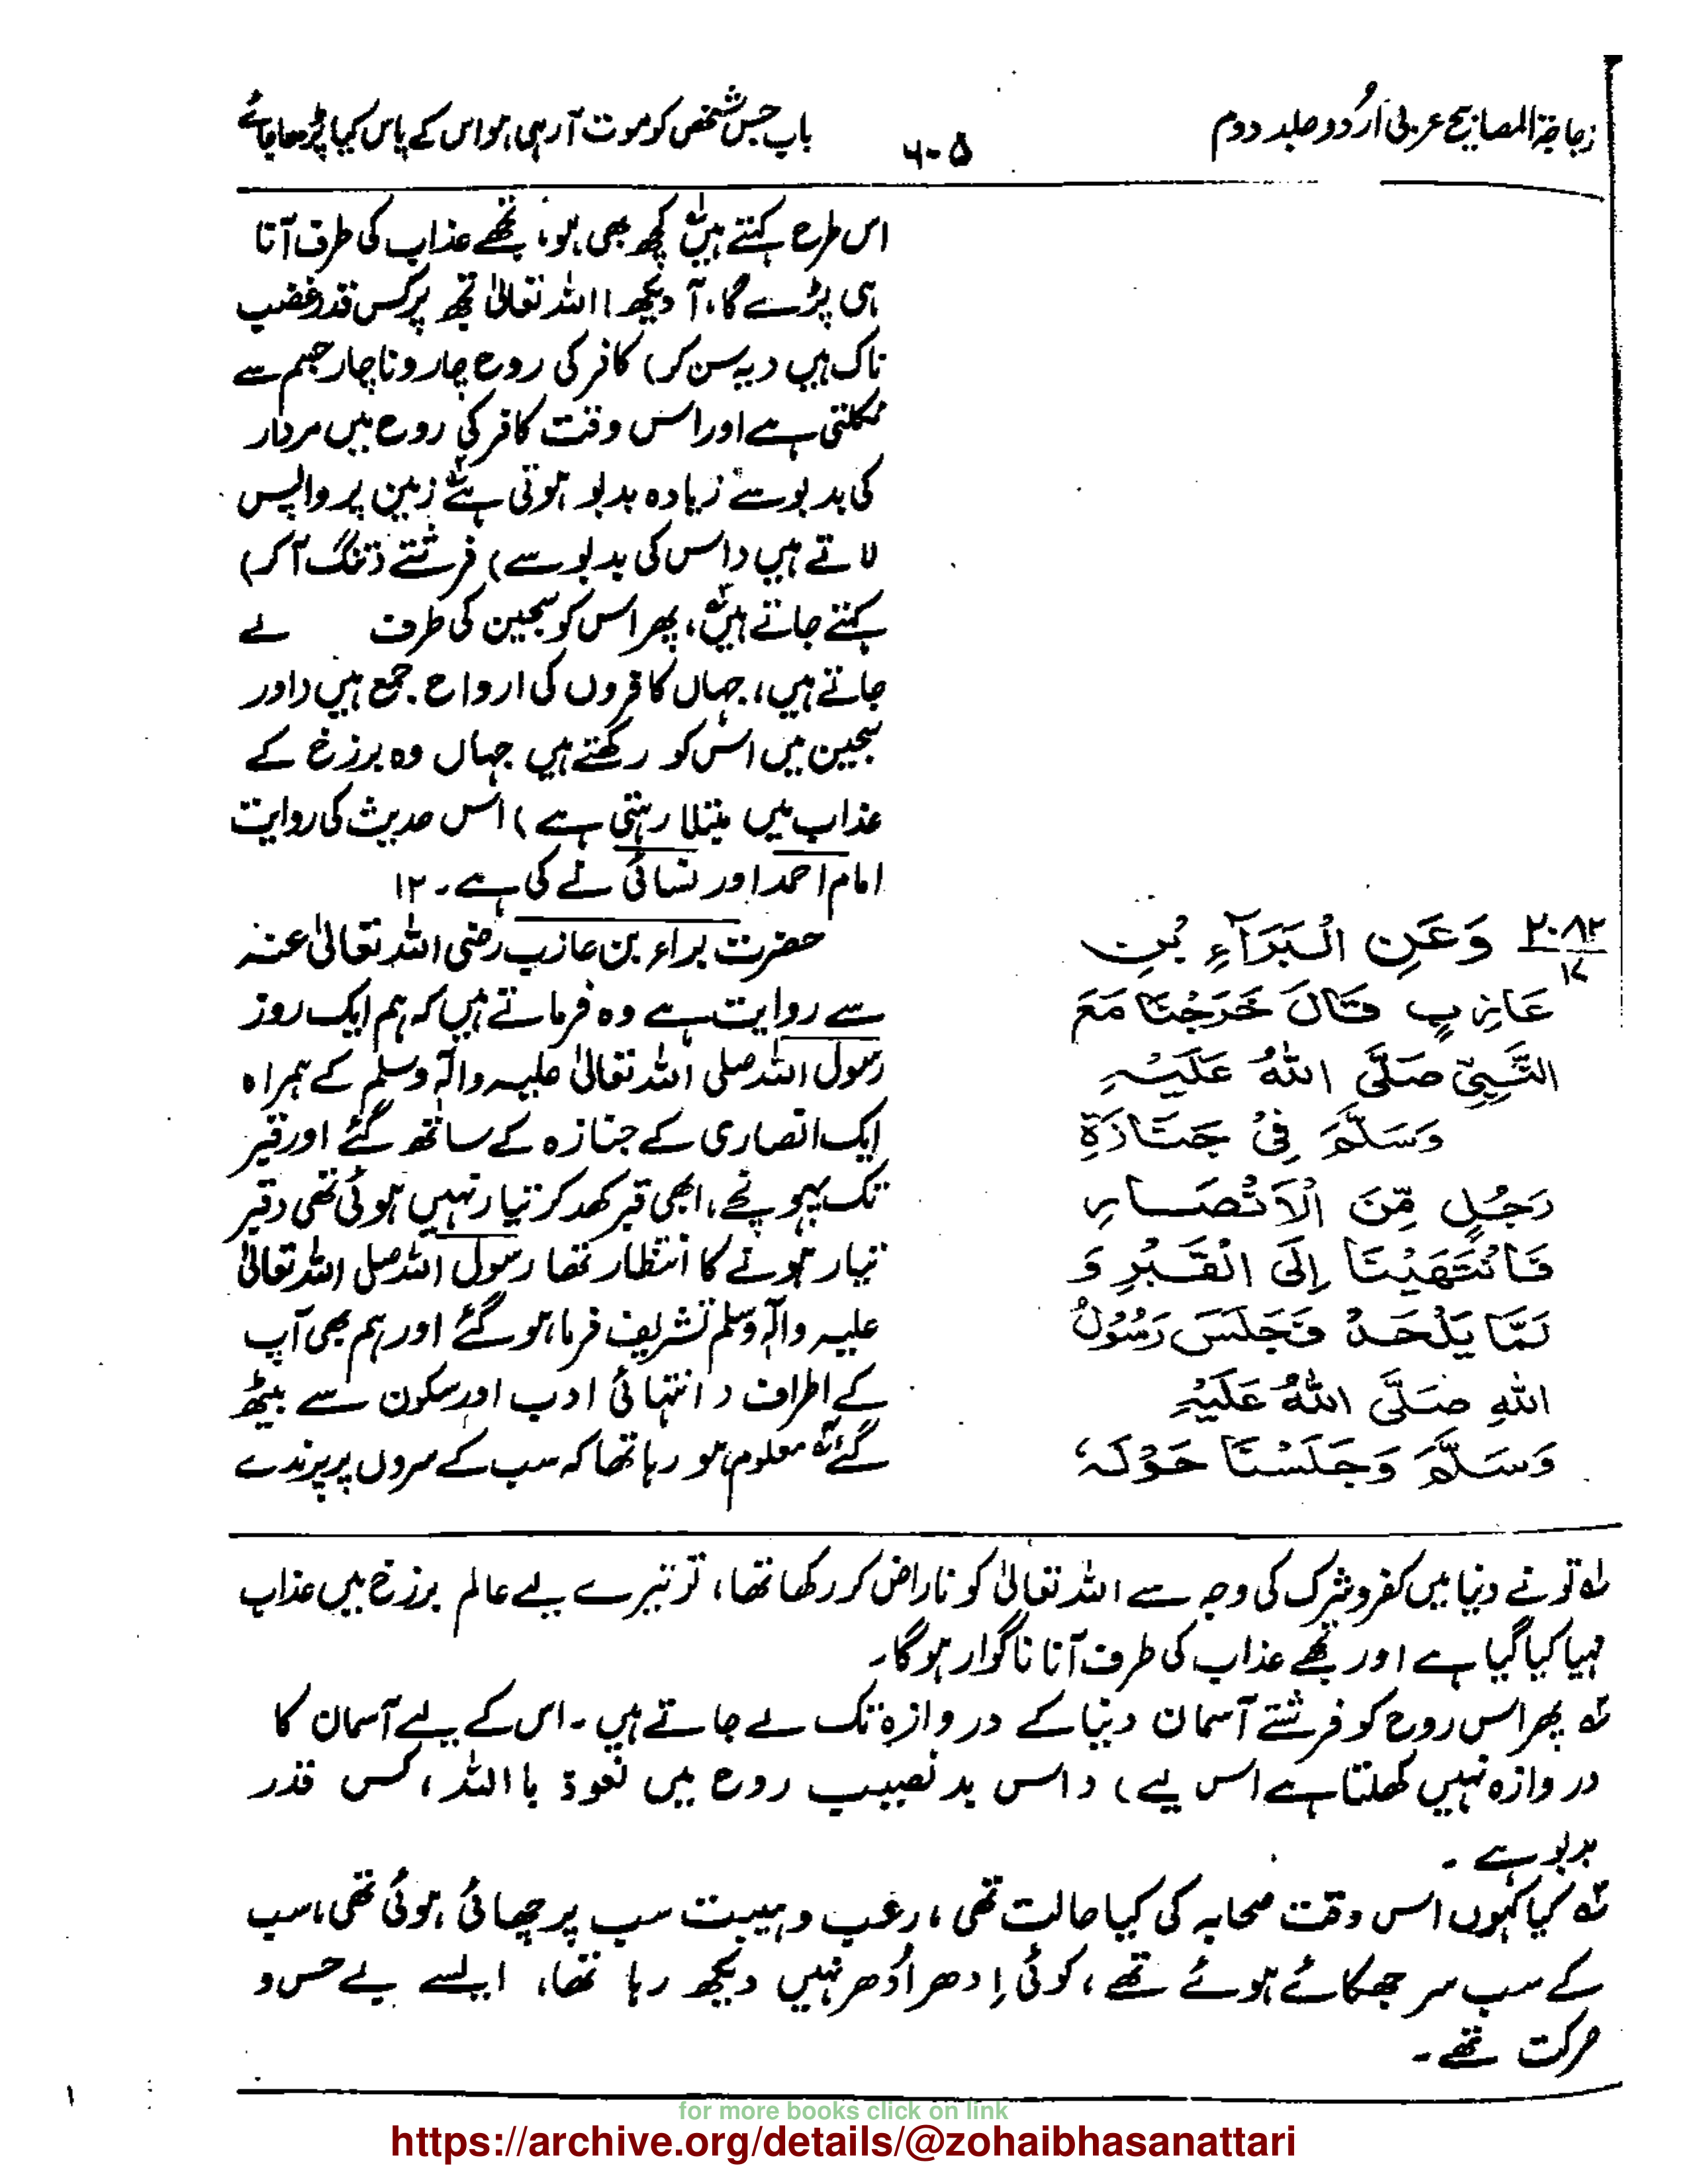 زجاجۃ المصابیح عربی اُردو جلد دوم
۶۰۵
باب جس شخص کو موت آرہی ہو اس کے پاس کیا پڑھا جائے
اس طرح کہتے ہیں کچھ بھی ہو، تجھے عذاب کی طرف آنا
ہی پڑے گا، آ دیکھ! اللہ تعالیٰ تجھ پر کس قدر غضب
ناک ہیں (یہ سن کر) کافر کی روح چار و ناچار جسم سے
نکلتی ہے اور اس وقت کافر کی روح میں مردار
کی بدبو سے زیادہ بدبو ہوتی ہے زمین پر واپس
لاتے ہیں (اس کی بدبو سے) فرشتے (تنگ آکر)
کہتے جاتے ہیں، پھر اس کو سجین کی طرف لے
جاتے ہیں، جہاں کافروں کی ارواح جمع ہیں (اور
سجین میں اس کو رکھتے ہیں جہاں وہ برزخ کے
عذاب میں مبتلا رہتی ہے) اس حدیث کی روایت
امام احمد اور نسائی نے کی ہے۔ ۱۲
۲۰۸۲
۱۷
وَعَنِ الْبَرَآءِ بْنِ
عَازِبٍ قَالَ خَرَجْنَا مَعَ
النَّبِیِّ صَلَّی اللهُ عَلَیْہِ
وَسَلَّمَ فِیْ جَنَازَۃِ
رَجُلٍ مِّنَ الْاَنْصَارِ
فَانْتَهَیْنَا اِلَی الْقَبْرِ وَ
لَمَّا یُلْحَدْ فَجَلَسَ رَسُوْلُ
اللهِ صَلَّی اللهُ عَلَیْہِ
وَسَلَّمَ وَجَلَسْنَا حَوْلَہٗ
حضرت براء بن عازب رضی اللہ تعالیٰ عنہ
سے روایت ہے وہ فرماتے ہیں کہ ہم ایک روز
رسول اللہ صلی اللہ تعالیٰ علیہ والہٖ وسلم کے ہمراہ
ایک انصاری کے جنازہ کے ساتھ گئے اور قبر
تک پہونچے، ابھی قبر کھد کر تیار نہیں ہوئی تھی (قبر
تیار ہونے کا انتظار تھا رسول اللہ صلی اللہ تعالیٰ
علیہ واٰلہٖ وسلم تشریف فرما ہو گئے اور ہم بھی آپ
کے اطراف (انتہائی ادب اور سکون سے بیٹھ
گئے معلوم ہو رہا تھا کہ سب کے سروں پر پرندے
لہ تو نے دنیا میں کفر و شرک کی وجہ سے اللہ تعالیٰ کو ناراض کر رکھا تھا، تو تیرے لیے عالم برزخ میں عذاب
مہیا کیا گیا ہے اور تجھے عذاب کی طرف آنا ناگوار ہوگا۔
ٹہ پھر اس روح کو فرشتے آسمان دنیا کے دروازہ تک لے جاتے ہیں۔ اس کے لیے آسمان کا
دروازہ نہیں کھلتا ہے اس لیے) (اس بد نصیب روح میں نعوذ با اللہ، کس قدر
بدبو ہے۔
تہ کیا کہوں اس وقت صحابہ کی کیا حالت تھی، رعب و ہیبت سب پر چھائی ہوئی تھی، سب
کے سب سر جھکائے ہوئے تھے، کوئی اِدھر اُدھر نہیں دیکھ رہا تھا، ایسے بے حس و
حرکت تھے۔
for more books click on link
https://archive.org/details/@zohaibhasanattari